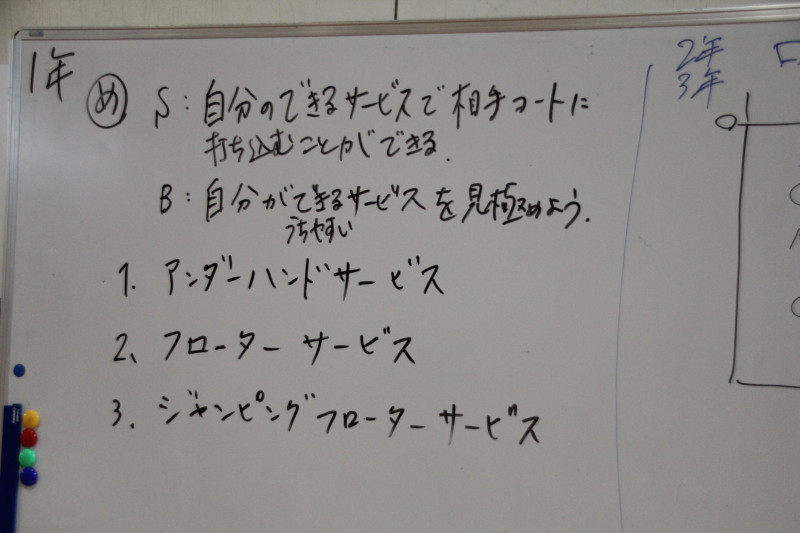 1年
め S:自分のできるサービスで相手コートに
打ち込むことができる.
B:自分ができるサービスを見極めよう.
うちやすい
1. アンダーハンドサービス
2、フローター サービス
3. ジャンピングフローター サービス
2年
3年